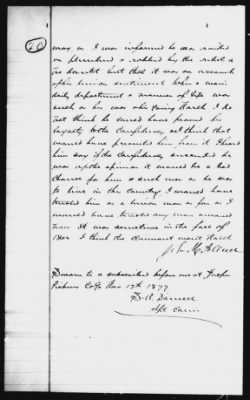 20
way as I was informed he was raided
or plundered & robbed by the rebels &
no doubt but that it was on account
of his union sentiments when a man
daily department & manner of life was
such as his was who during the war I do
not think he could have proved his
loyalty to the Confederacy or think that
would have prevented him from it I heard
him say if the Confederacy succeeded he
was apt to open it would be a bad
chance for him & such men as he was
to live in the country I would have
trusted him as a union man as far as I
would have trusted any man around
town It was sometime in the fall of
1864 I think the claimant went North
Sworn to & subscribed before me at Jasper
Pickens Co Ga Nov 17th 1877
Spl Com